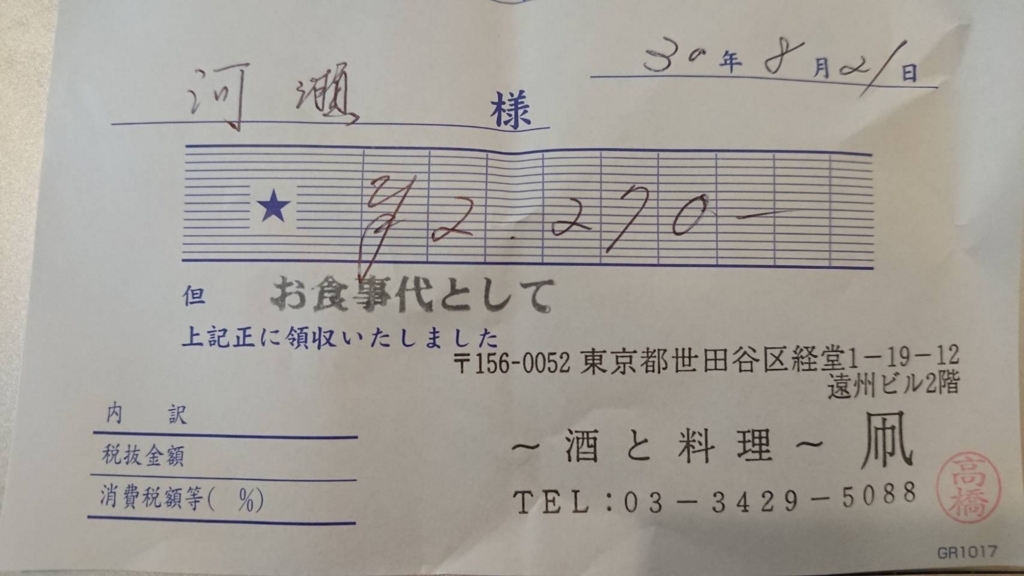 30年8月21日
河瀬 様
★ ¥2.270-
但 お食事代として
上記正に領収いたしました
〒156-0052 東京都世田谷区経堂1-19-12
遠州ビル2階
内 訳
税抜金額
~酒と料理~ 凧
消費税額等( %)
TEL:03-3429-5088
高橋
GR1017